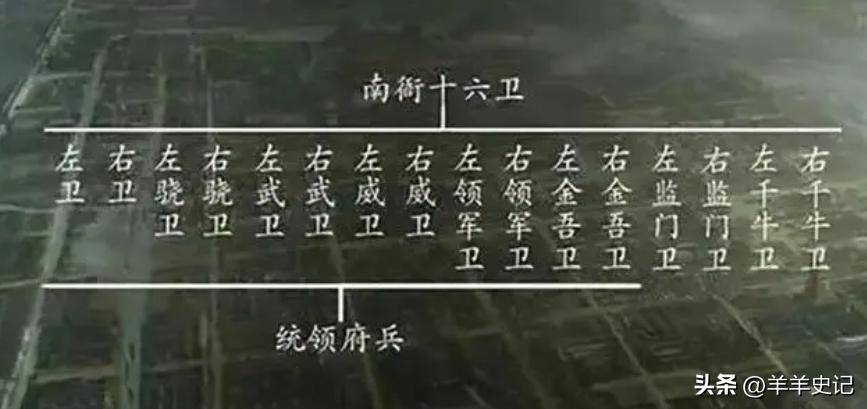 南衙十六卫
左卫
右卫
左骁卫
右骁卫
左武卫
右武卫
左威卫
右威卫
左领军卫
右领军卫
左金吾卫
右金吾卫
左监门卫
右监门卫
左千牛卫
右千牛卫
统领府兵
头条 @羊羊史记